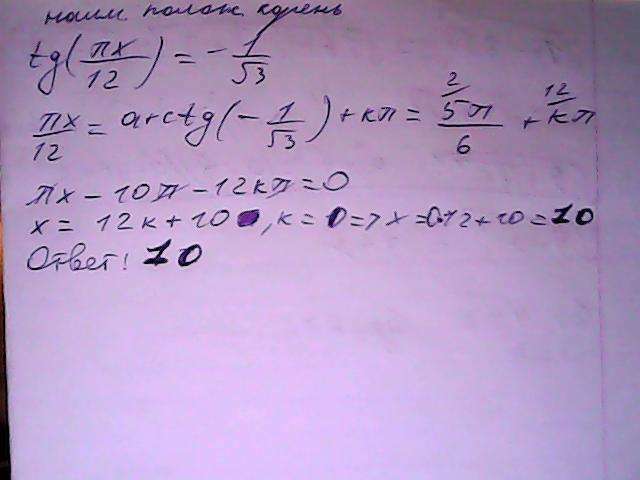 наим. полож корень
tg(πx/12) = -1/√3
πx/12 = arctg(-1/√3) + кπ = 2/5π/6 + 12/кπ
πx - 10π - 12кπ = 0
x = 12к + 10, к = 0 => x = 0·12 + 10 = 10
Ответ: 10